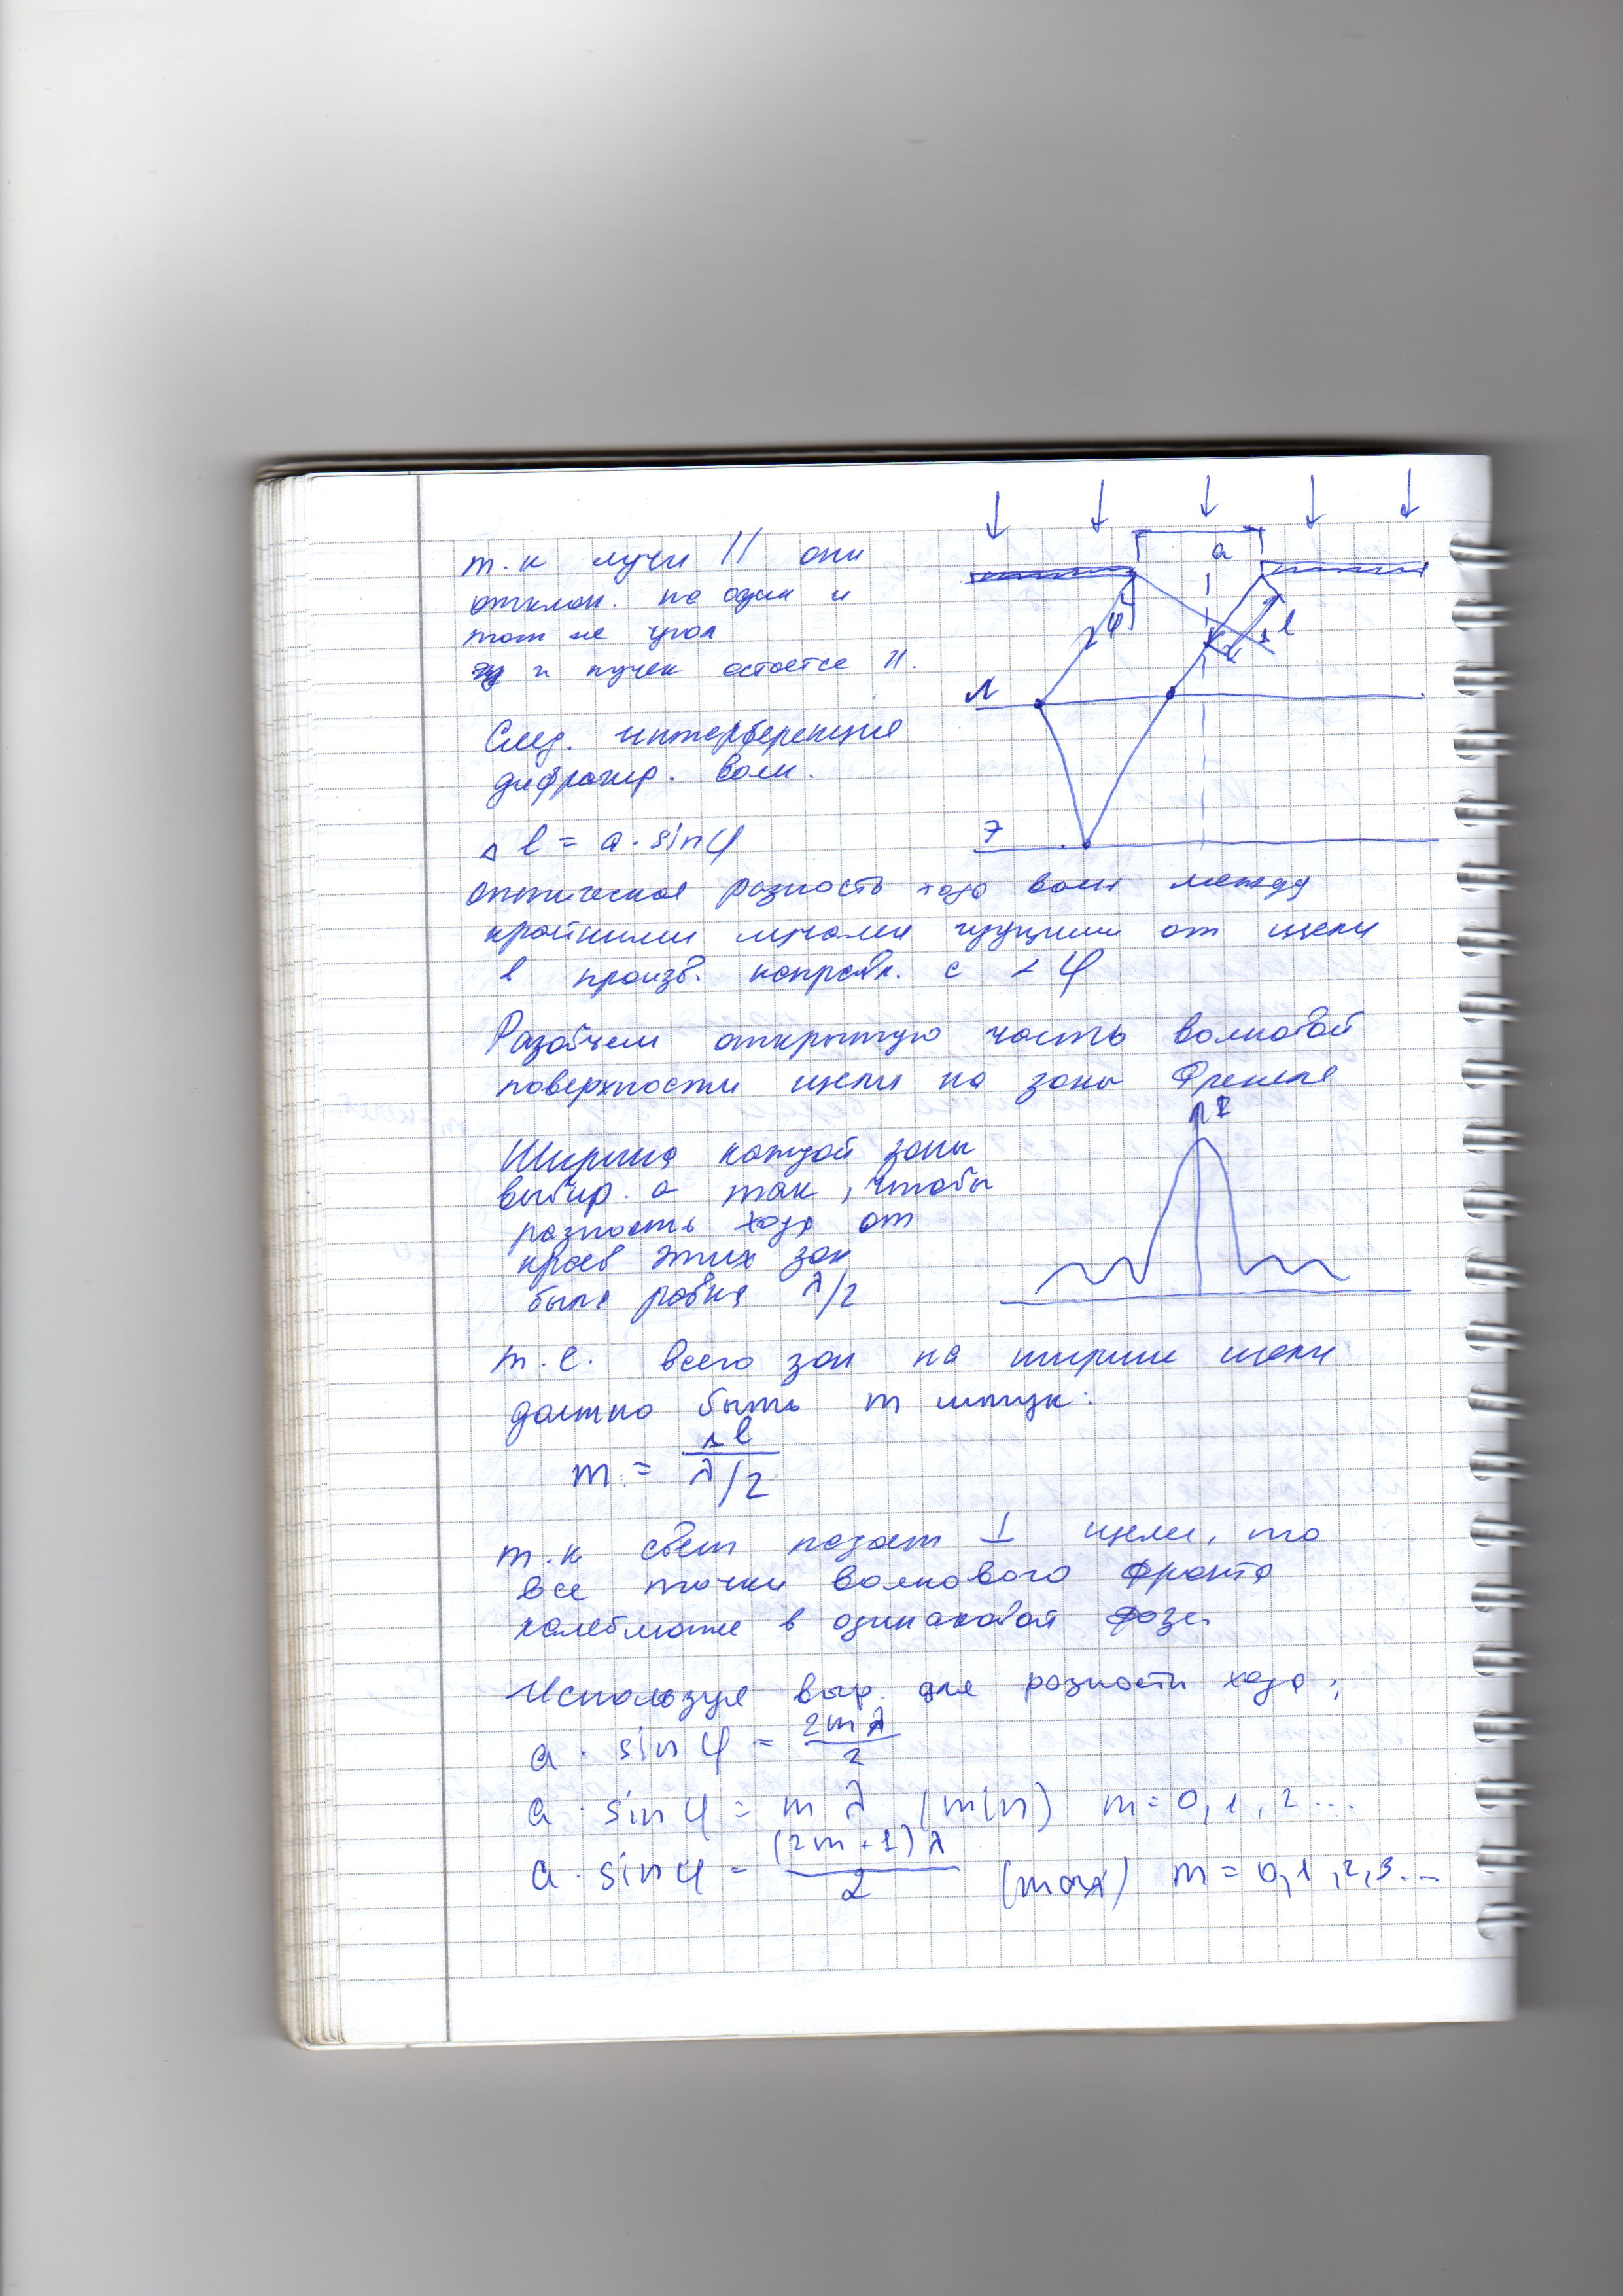 т.к лучи || они
a
отклон. на один и
тот же угол
φ
Δl
и пучек остается ||.
Л
След. интерференция
дифрагир. волн.
Э
Δl = a·sinφ
оптическая разность хода волн между
крайними лучами идущими от щели
в произв. направл. с φ
Разобьем открытую часть волновой
поверхности щели на зоны Френеля
I
Ширина каждой зоны
выбир. а так, чтобы
разность хода от
краев этих зон
была равна λ/2
т.е. всего зон на ширине щели
должно быть m штук:
m = Δl / λ/2
т.к свет падает ⊥ щели, то
все точки волнового фронта
колеблются в одинаковой фазе
Используя выр. для разности хода;
a · sinφ = 2mλ/2
a · sinφ = mλ (min) m = 0, 1, 2 ...
a · sinφ = (2m+1)λ/2 (max) m = 0, 1, 2, 3...